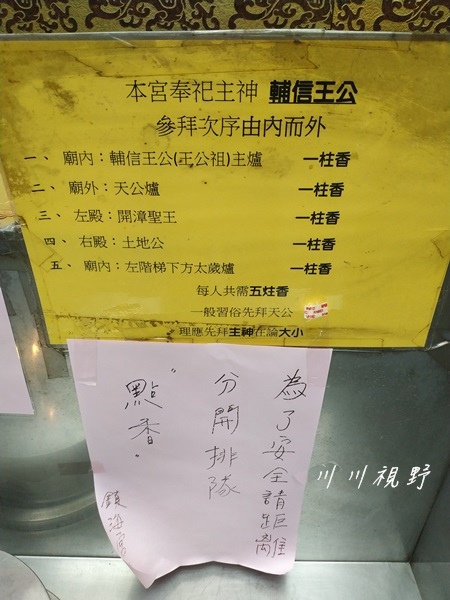 本宮奉祀主神 輔信王公
參拜次序由內而外
一、 廟內：輔信王公(王公祖)主爐 一柱香
二、 廟外：天公爐 一柱香
三、 左殿：開漳聖王 一柱香
四、 右殿：土地公 一柱香
五、 廟內：左階梯下方太歲爐 一柱香
每人共需五炷香
一般習俗先拜天公
理應先拜主神在論大小
為了安全請距離
分開排隊
"點香"
鎮海宮
川川視野